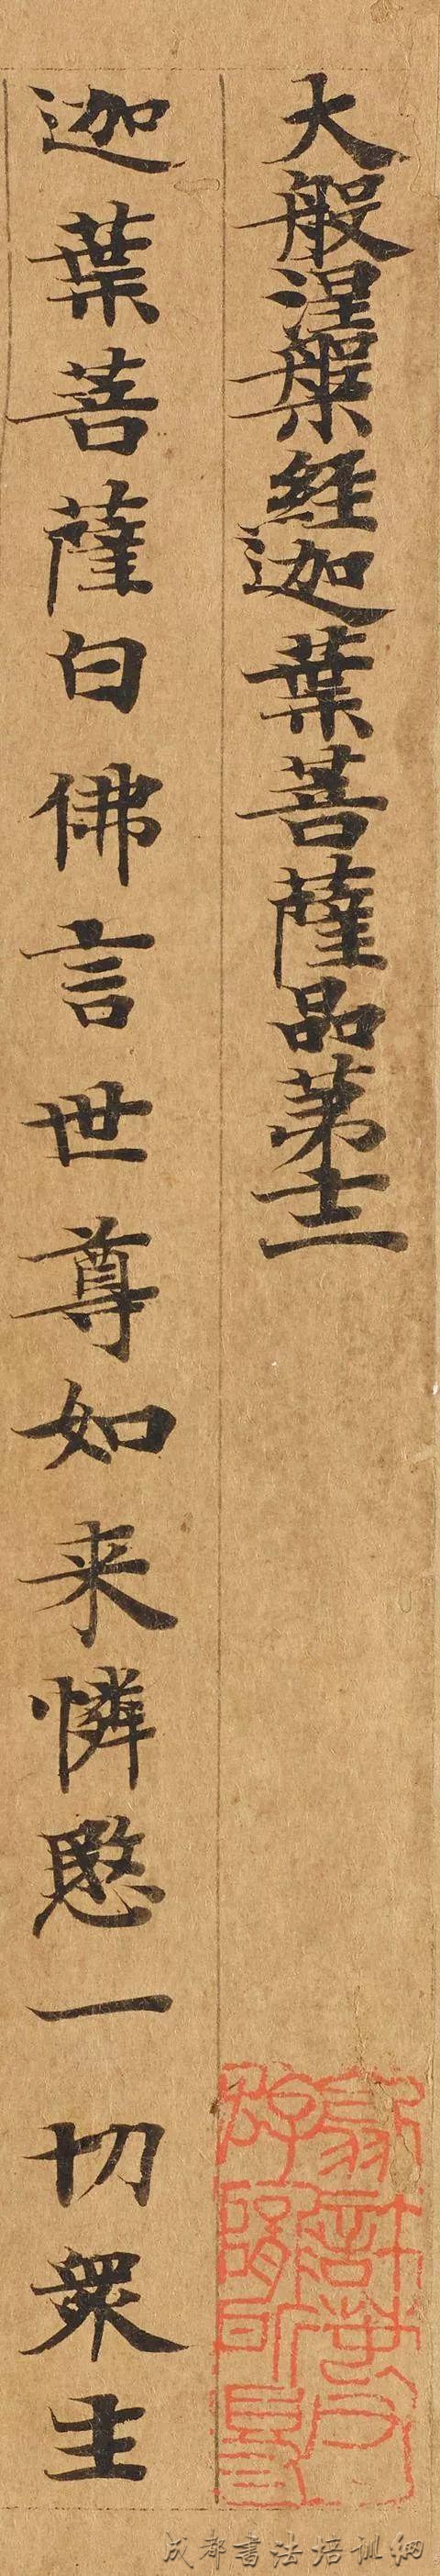 大般涅槃經迦葉菩薩品苐十二
迦葉菩薩白佛言世尊如来憐愍一切衆生
成都書法培训網